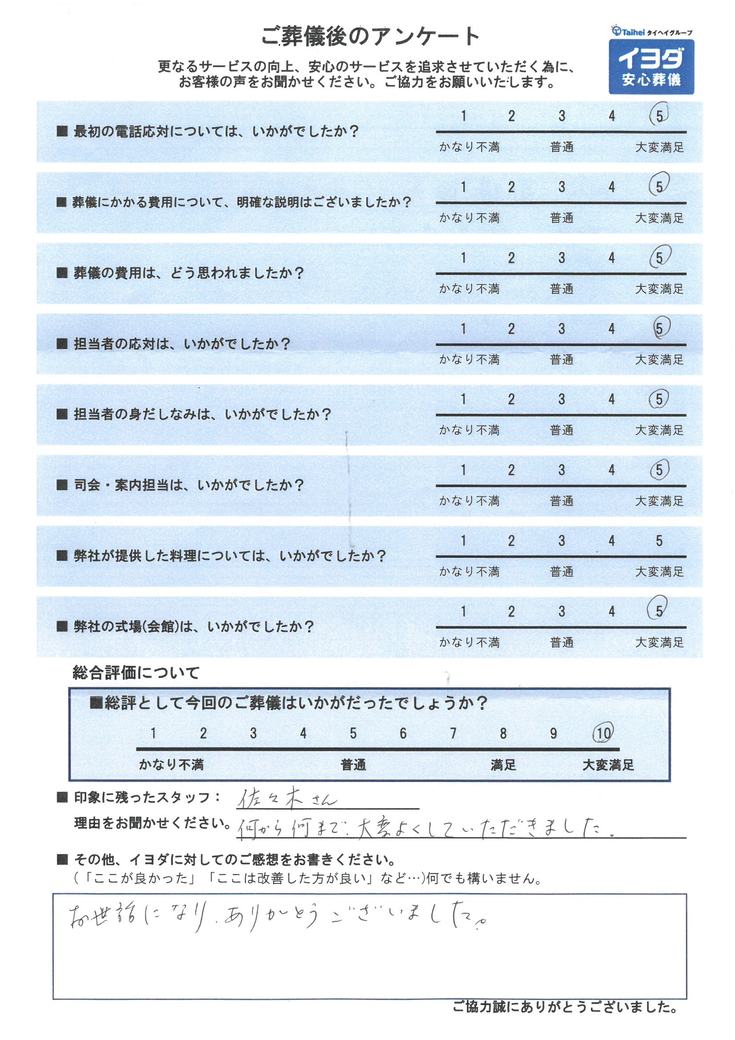 ご葬儀後のアンケート
Taihei タイヘイグループ
イヨダ
安心葬儀
更なるサービスの向上、安心のサービスを追求させていただく為に、
お客様の声をお聞かせください。ご協力をお願いいたします。
■ 最初の電話応対については、いかがでしたか？
1 2 3 4 5
かなり不満 普通 大変満足
■ 葬儀にかかる費用について、明確な説明はございましたか？
1 2 3 4 5
かなり不満 普通 大変満足
■ 葬儀の費用は、どう思われましたか？
1 2 3 4 5
かなり不満 普通 大変満足
■ 担当者の応対は、いかがでしたか？
1 2 3 4 5
かなり不満 普通 大変満足
■ 担当者の身だしなみは、いかがでしたか？
1 2 3 4 5
かなり不満 普通 大変満足
■ 司会・案内担当は、いかがでしたか？
1 2 3 4 5
かなり不満 普通 大変満足
■ 弊社が提供した料理については、いかがでしたか？
1 2 3 4 5
かなり不満 普通 大変満足
■ 弊社の式場(会館)は、いかがでしたか？
1 2 3 4 5
かなり不満 普通 大変満足
総合評価について
■総評として今回のご葬儀はいかがだったでしょうか？
1 2 3 4 5 6 7 8 9 10
かなり不満 普通 満足 大変満足
■ 印象に残ったスタッフ： 佐々木さん
理由をお聞かせください。 何から何まで、大変よくしていただきました。
■ その他、イヨダに対してのご感想をお書きください。
（「ここが良かった」「ここは改善した方が良い」など…)何でも構いません。
お世話になり、ありがとうございました。
ご協力誠にありがとうございました。